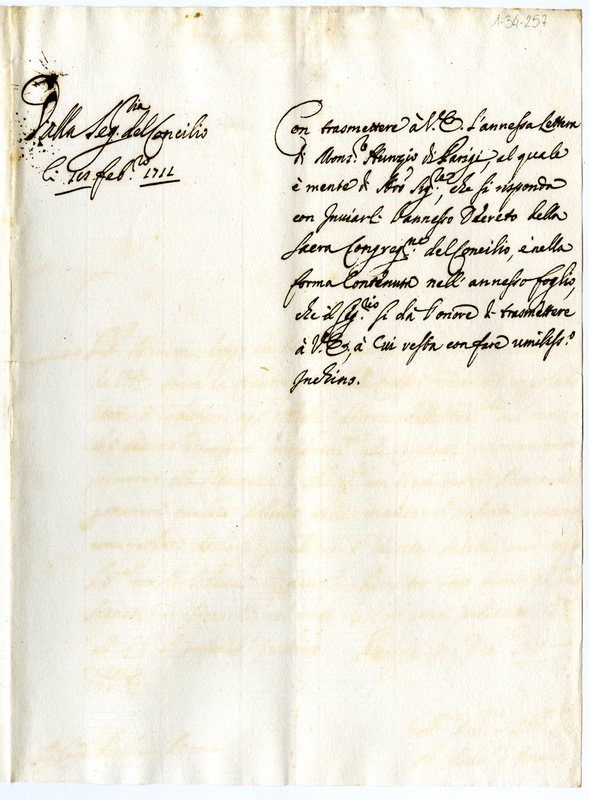 1-34-257
Dalla Seg.ria del Concilio
li feb.ro 1711
Con trasmettere à V.E. l'annessa lettera
di Mons.r Nunzio di Parigi, al quale
è mente di N.ro Sig.re, che si risponda
con Inviarli l'annesso Decreto della
Sacra Congreg.ne del Concilio, e nella
forma Contenuta nell'annesso foglio,
che il Seg.rio si dà l'onore di trasmettere
à V.E., à Cui resta con fare umiliss.o
Inchino.